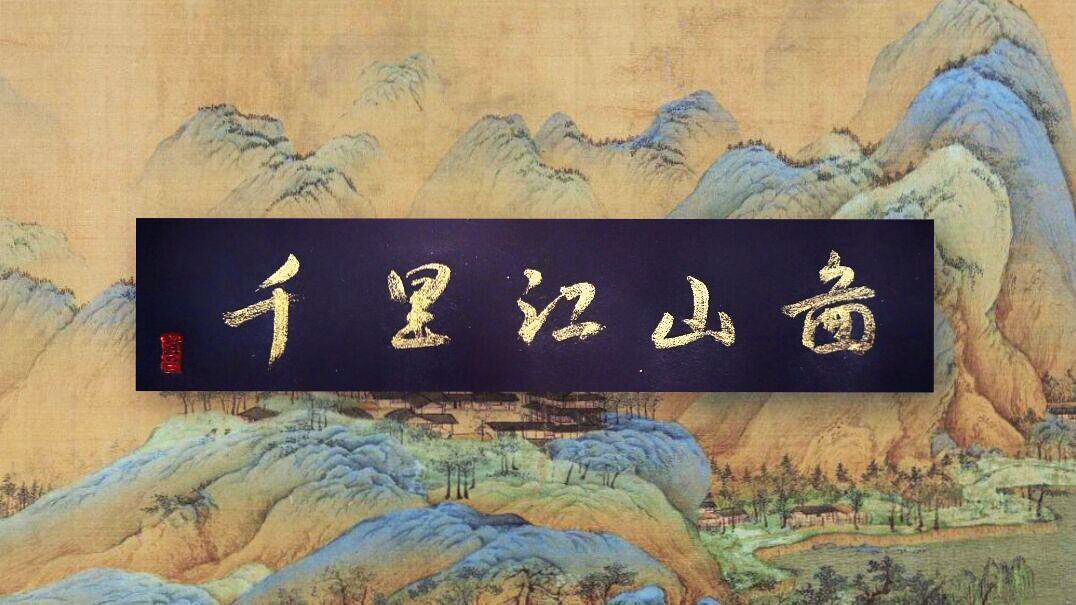 千里江山啚